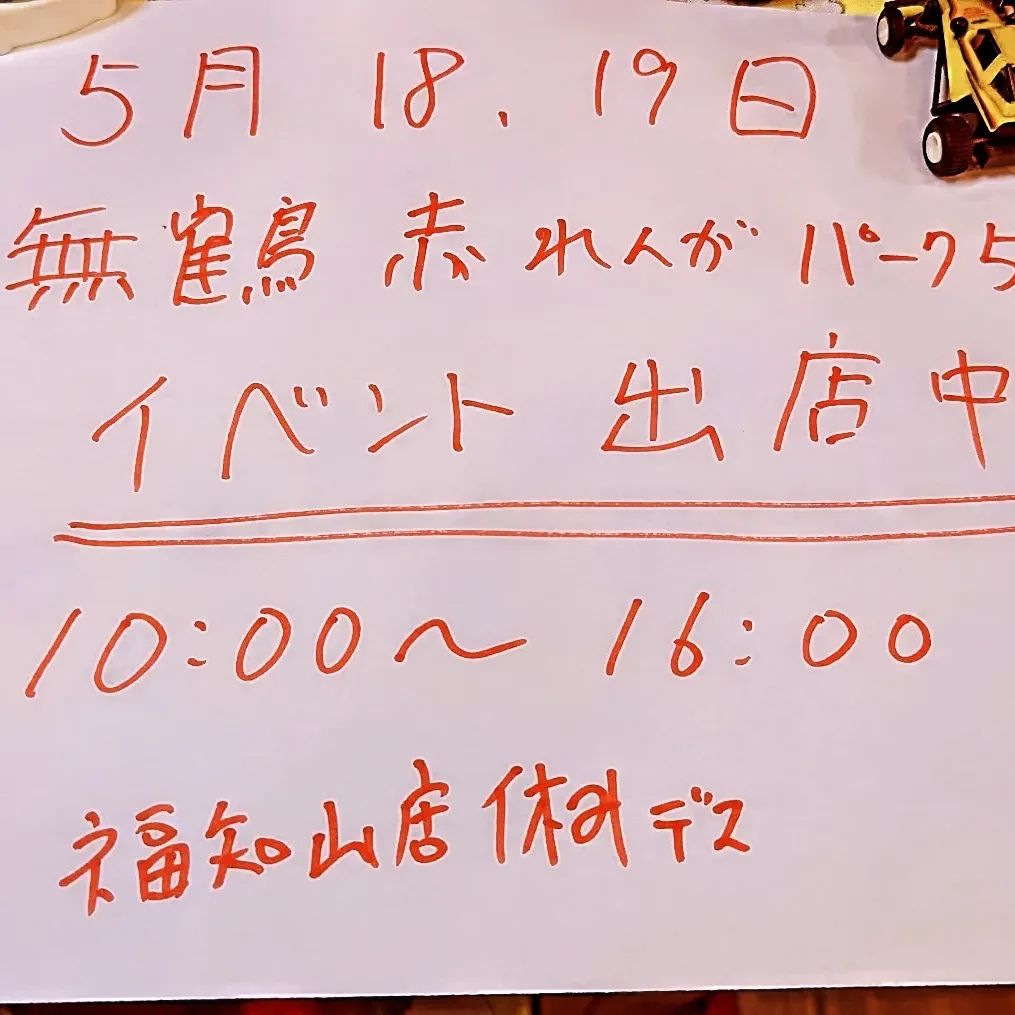 5月 18.19日
無鶴 赤れんがパーク5
イベント出店中
10:00〜16:00
福知山店休みデス